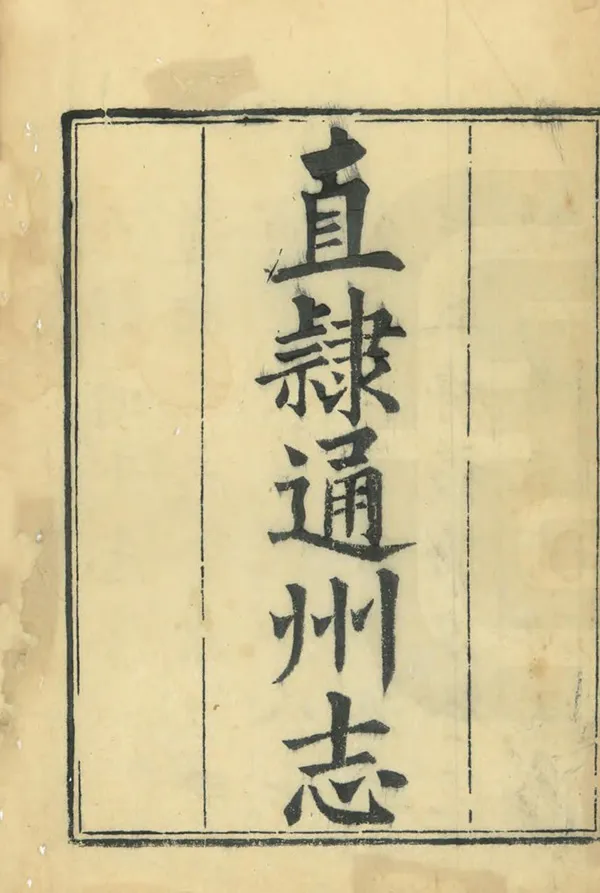 直隷通州志